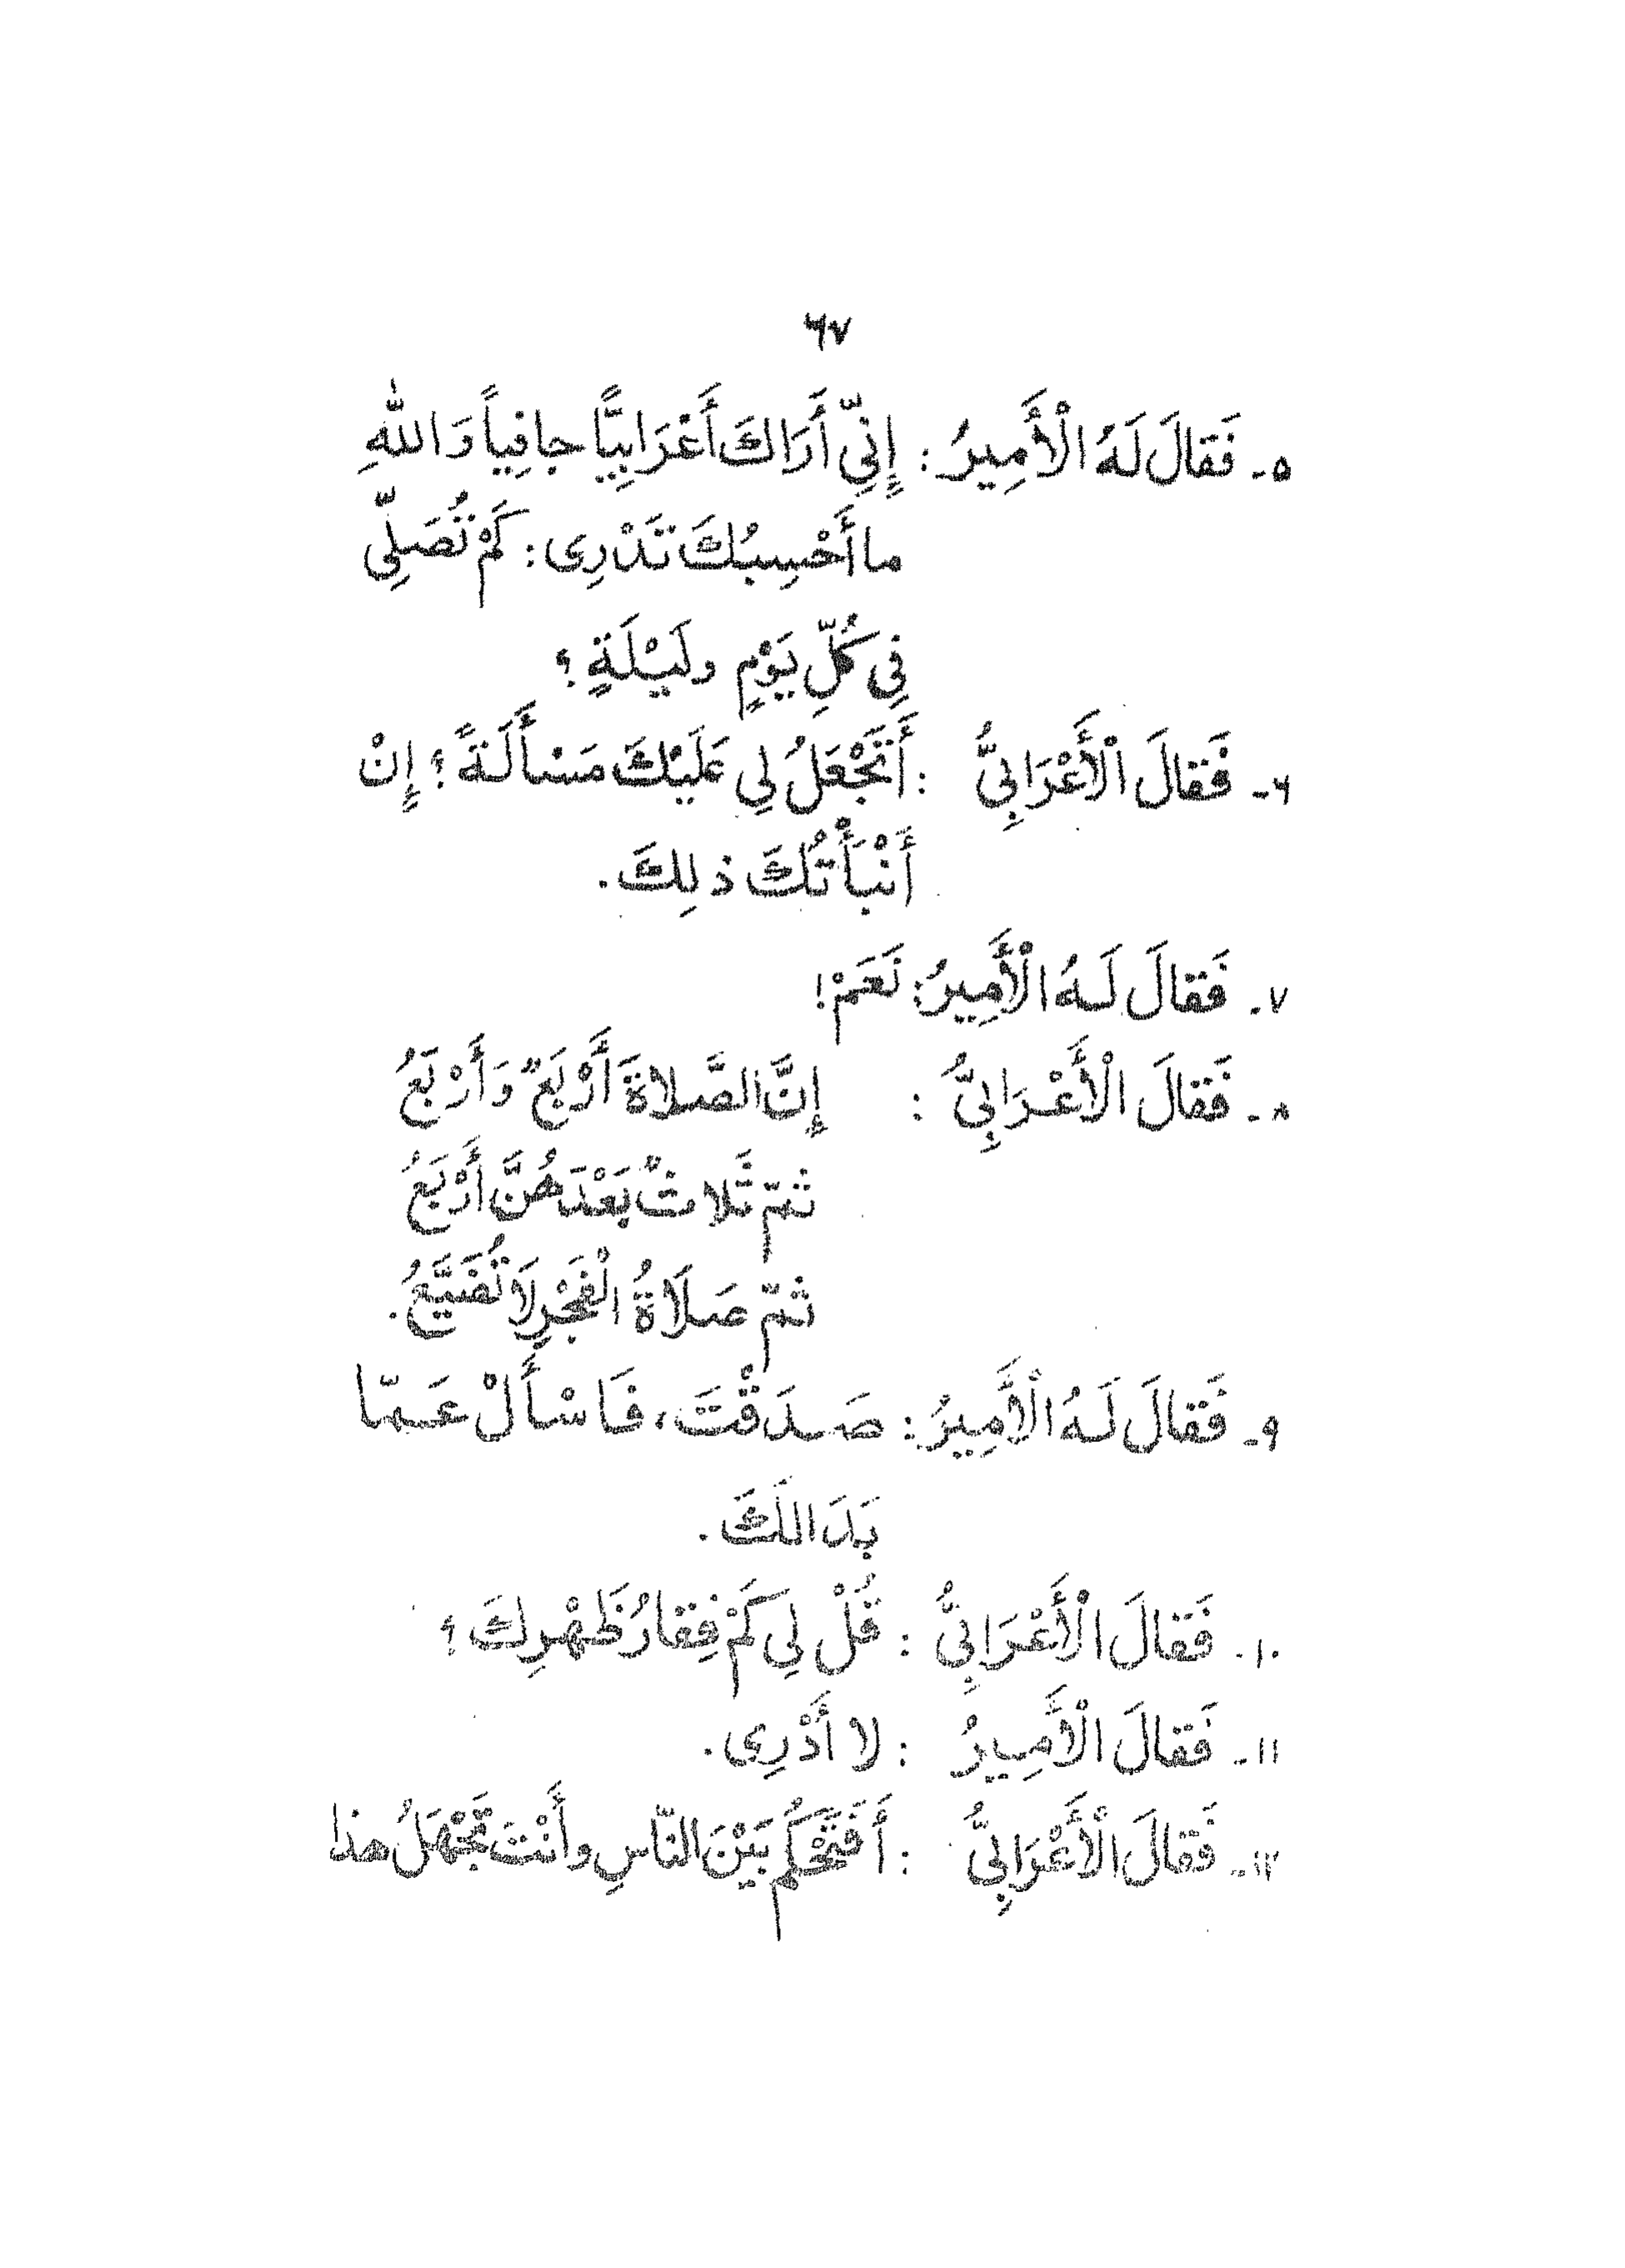 ٦٧
٥- فَقالَ لَهُ الْأَمِيرُ : إِنِّي أَرَاكَ أَعْرَابِيًّا جافِياً وَاللّٰهِ
ما أَحْسِبُكَ تَدْرِى : كَمْ تُصَلِّى
فِى كُلِّ يَوْمٍ ولَيْلَةٍ ؟
٦- فَقالَ الْأَعْرَابِيُّ : أَتَجْعَلُ لِي عَلَيْكَ مَسْأَلَةً ؟ إِنْ
أَنْبَأْتُكَ ذلِكَ .
٧- فَقالَ لَهُ الْأَمِيرُ : نَعَمْ !
٨- فَقالَ الْأَعْرَابِيُّ : إِنَّ الصَّلاةَ أَرْبَعٌ وَأَرْبَعُ
ثمّ ثَلاثٌ بَعْدَهُنَّ أَرْبَعُ
ثمّ صَلَاةُ الْفَجْرِ لَا تُضَيَّعُ .
٩- فَقالَ لَهُ الْأَمِيرُ : صَدَقْتَ ، فَاسْأَلْ عَمّا
بَدَا لَكَ .
١٠- فَقالَ الْأَعْرَابِيُّ : قُلْ لِي كَمْ فِقارُ ظَهْرِكَ ؟
١١- فَقالَ الْأَمِيرُ : لا أَدْرِى .
١٢- فَقالَ الْأَعْرَابِيُّ : أَفَتَحْكُم بَيْنَ النّاسِ وأَنْتَ تَجْهَلُ هذا